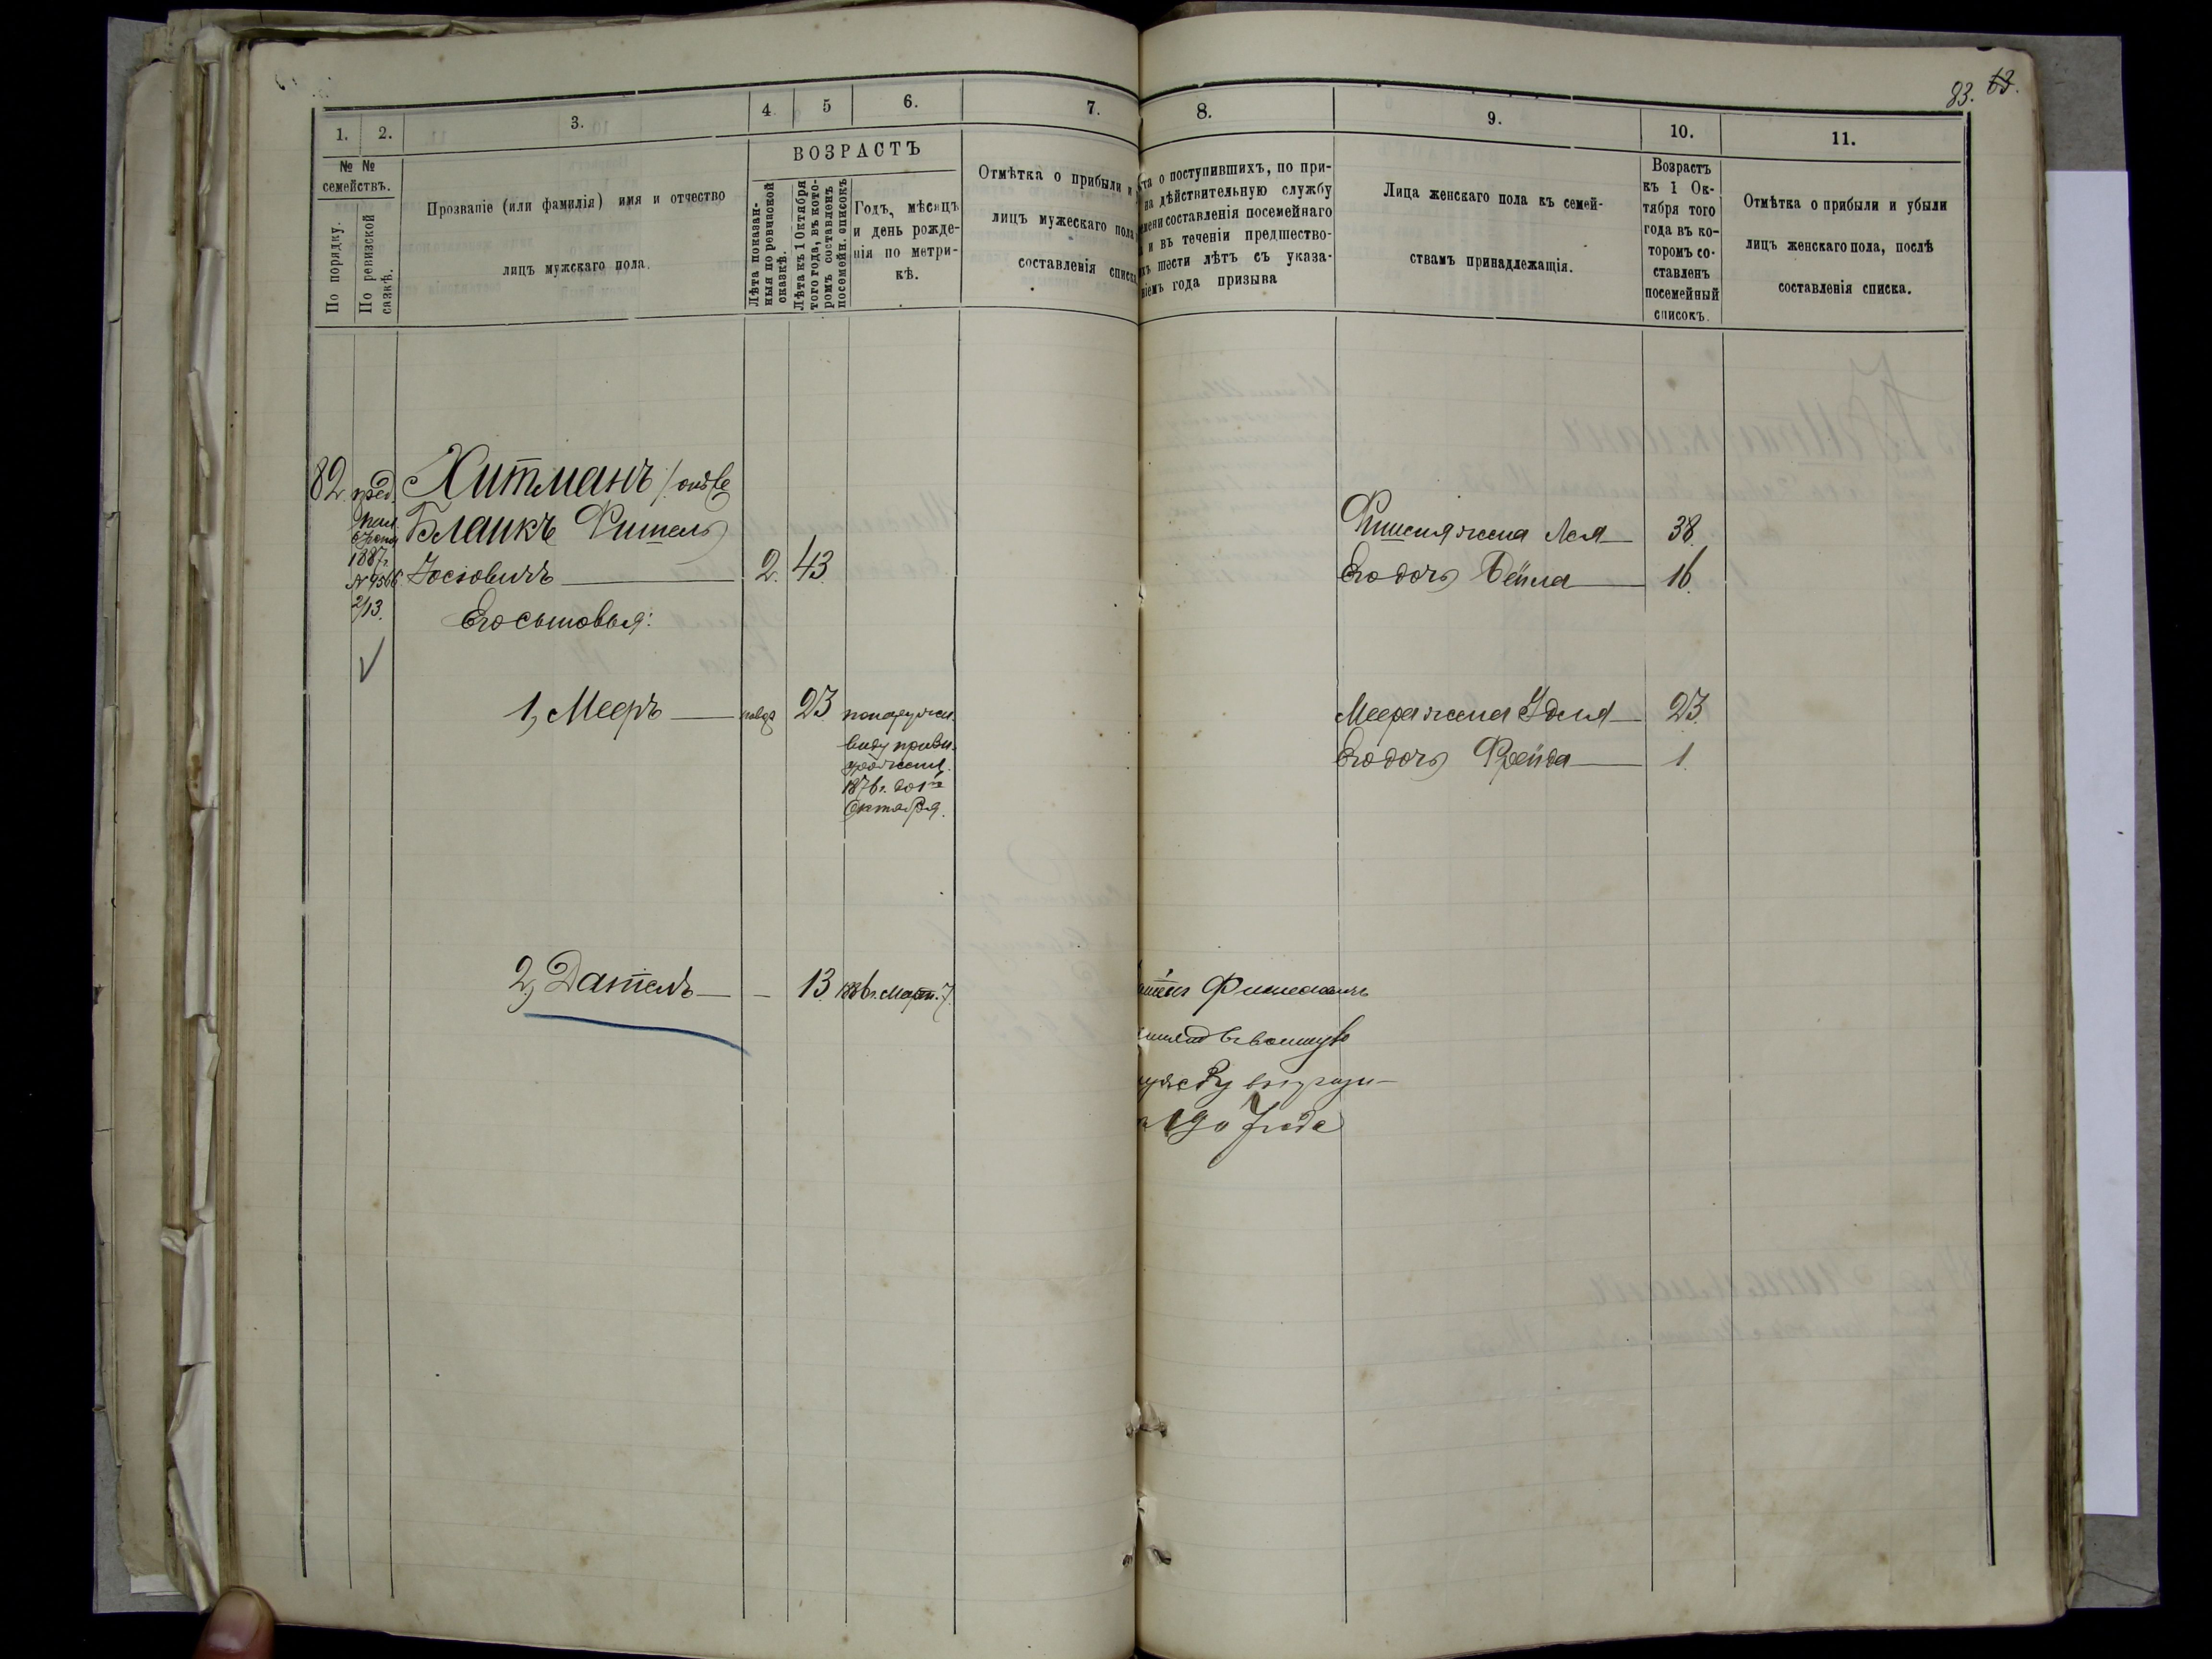 83. 63.
1.
2.
3.
4.
5
6.
7.
8.
9.
10.
11.
№ №
семействъ.
По порядку.
По ревизской
сазкѣ.
Прозваніе (или фамилія) имя и отчество
лицъ мужскаго пола.
ВОЗРАСТЪ
Лѣта показан-
ныя по ревизской
сказкѣ.
Лѣта къ 1 Октября
того года, въ кото-
ромъ составленъ
посемейн. списокъ
Годъ, мѣсяцъ
и день рожде-
нія по метри-
кѣ.
Отмѣтка о прибыли и
лицъ мужескаго пола
составленія списка
та о поступившихъ, по при-
на дѣйствительную службу
мени составленія посемейнаго
и въ теченіи предшество-
хъ шести лѣтъ съ указа-
ніемъ года призыва
Лица женскаго пола къ семей-
ствамъ принадлежащія.
Возрастъ
къ 1 Ок-
тября того
года въ ко-
торомъ со-
ставленъ
посемейный
списокъ.
Отмѣтка о прибыли и убыли
лицъ женскаго пола, послѣ
составленія списка.
82 пред. Хитманъ
Бланкъ Фишель
1887г.
№ 4566 Іосіовичъ 2. 43.
2/13.
Его сыновья:
Фишеля жена Лея 38.
Его дочь Бейла 16.
1, Мееръ 23
виду
1876г. до 1го
Октября.
Меера жена Удля 23.
Его дочь Фрейда 1.
2, Дателъ — 13. 1886г. Март. 7.
Фишелевичъ
въ военную
190 года